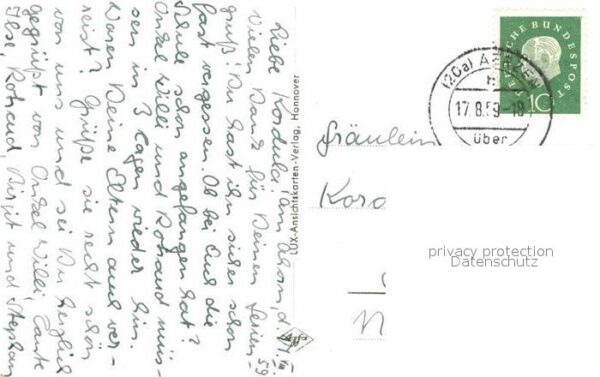 Liebe Kordula! den 17.8.59
Vielen Dank für Deinen Ferien-
gruß! Du hast ihn sicher schon
fast vergessen. Ob bei Euch die
Schule schon angefangen hat?
Onkel Willi und Rotraud müs-
sen in 3 Tagen wieder hin.
Waren Deine Eltern auch ver-
reist? Grüße sie recht schön
von uns und sei Du herzlich
gegrüßt von Onkel Willi, Tante
Ilse, Rotraud, Birgit und Stephan
LUX-Ansichtskarten-Verlag, Hannover
Agfa
DEUTSCHE BUNDESPOST
10
(20a) AERZEN
17.8.59-18
über
Fräulein
Kord
privacy protection
Datenschutz